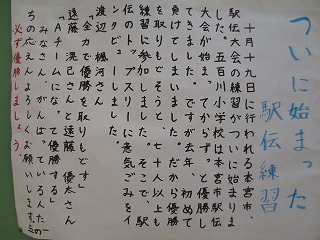 ついに始まった
駅伝練習
十月十九日に行われる本宮市
駅伝大会の練習がついに始まりま
した。五百川小学校は本宮市駅伝
大会が始まってから、ずっと優勝し
てきました。ですが去年、初めて
負けてしまいました。だから、優勝
を取りもどそうと、七十人以上も
練習に参加しました。そこで、駅
伝のトップスリーに意気ごみをイ
ンタビューしました。
渡辺 楓河さん
「全力で優勝を取りもどす」
遠藤 滉己さんと遠藤優太さん
「Aチームになって優勝する」
みなさん、がんばっている人た
ちの応えんをよろしくお願いします。
必ず優勝しましょう。